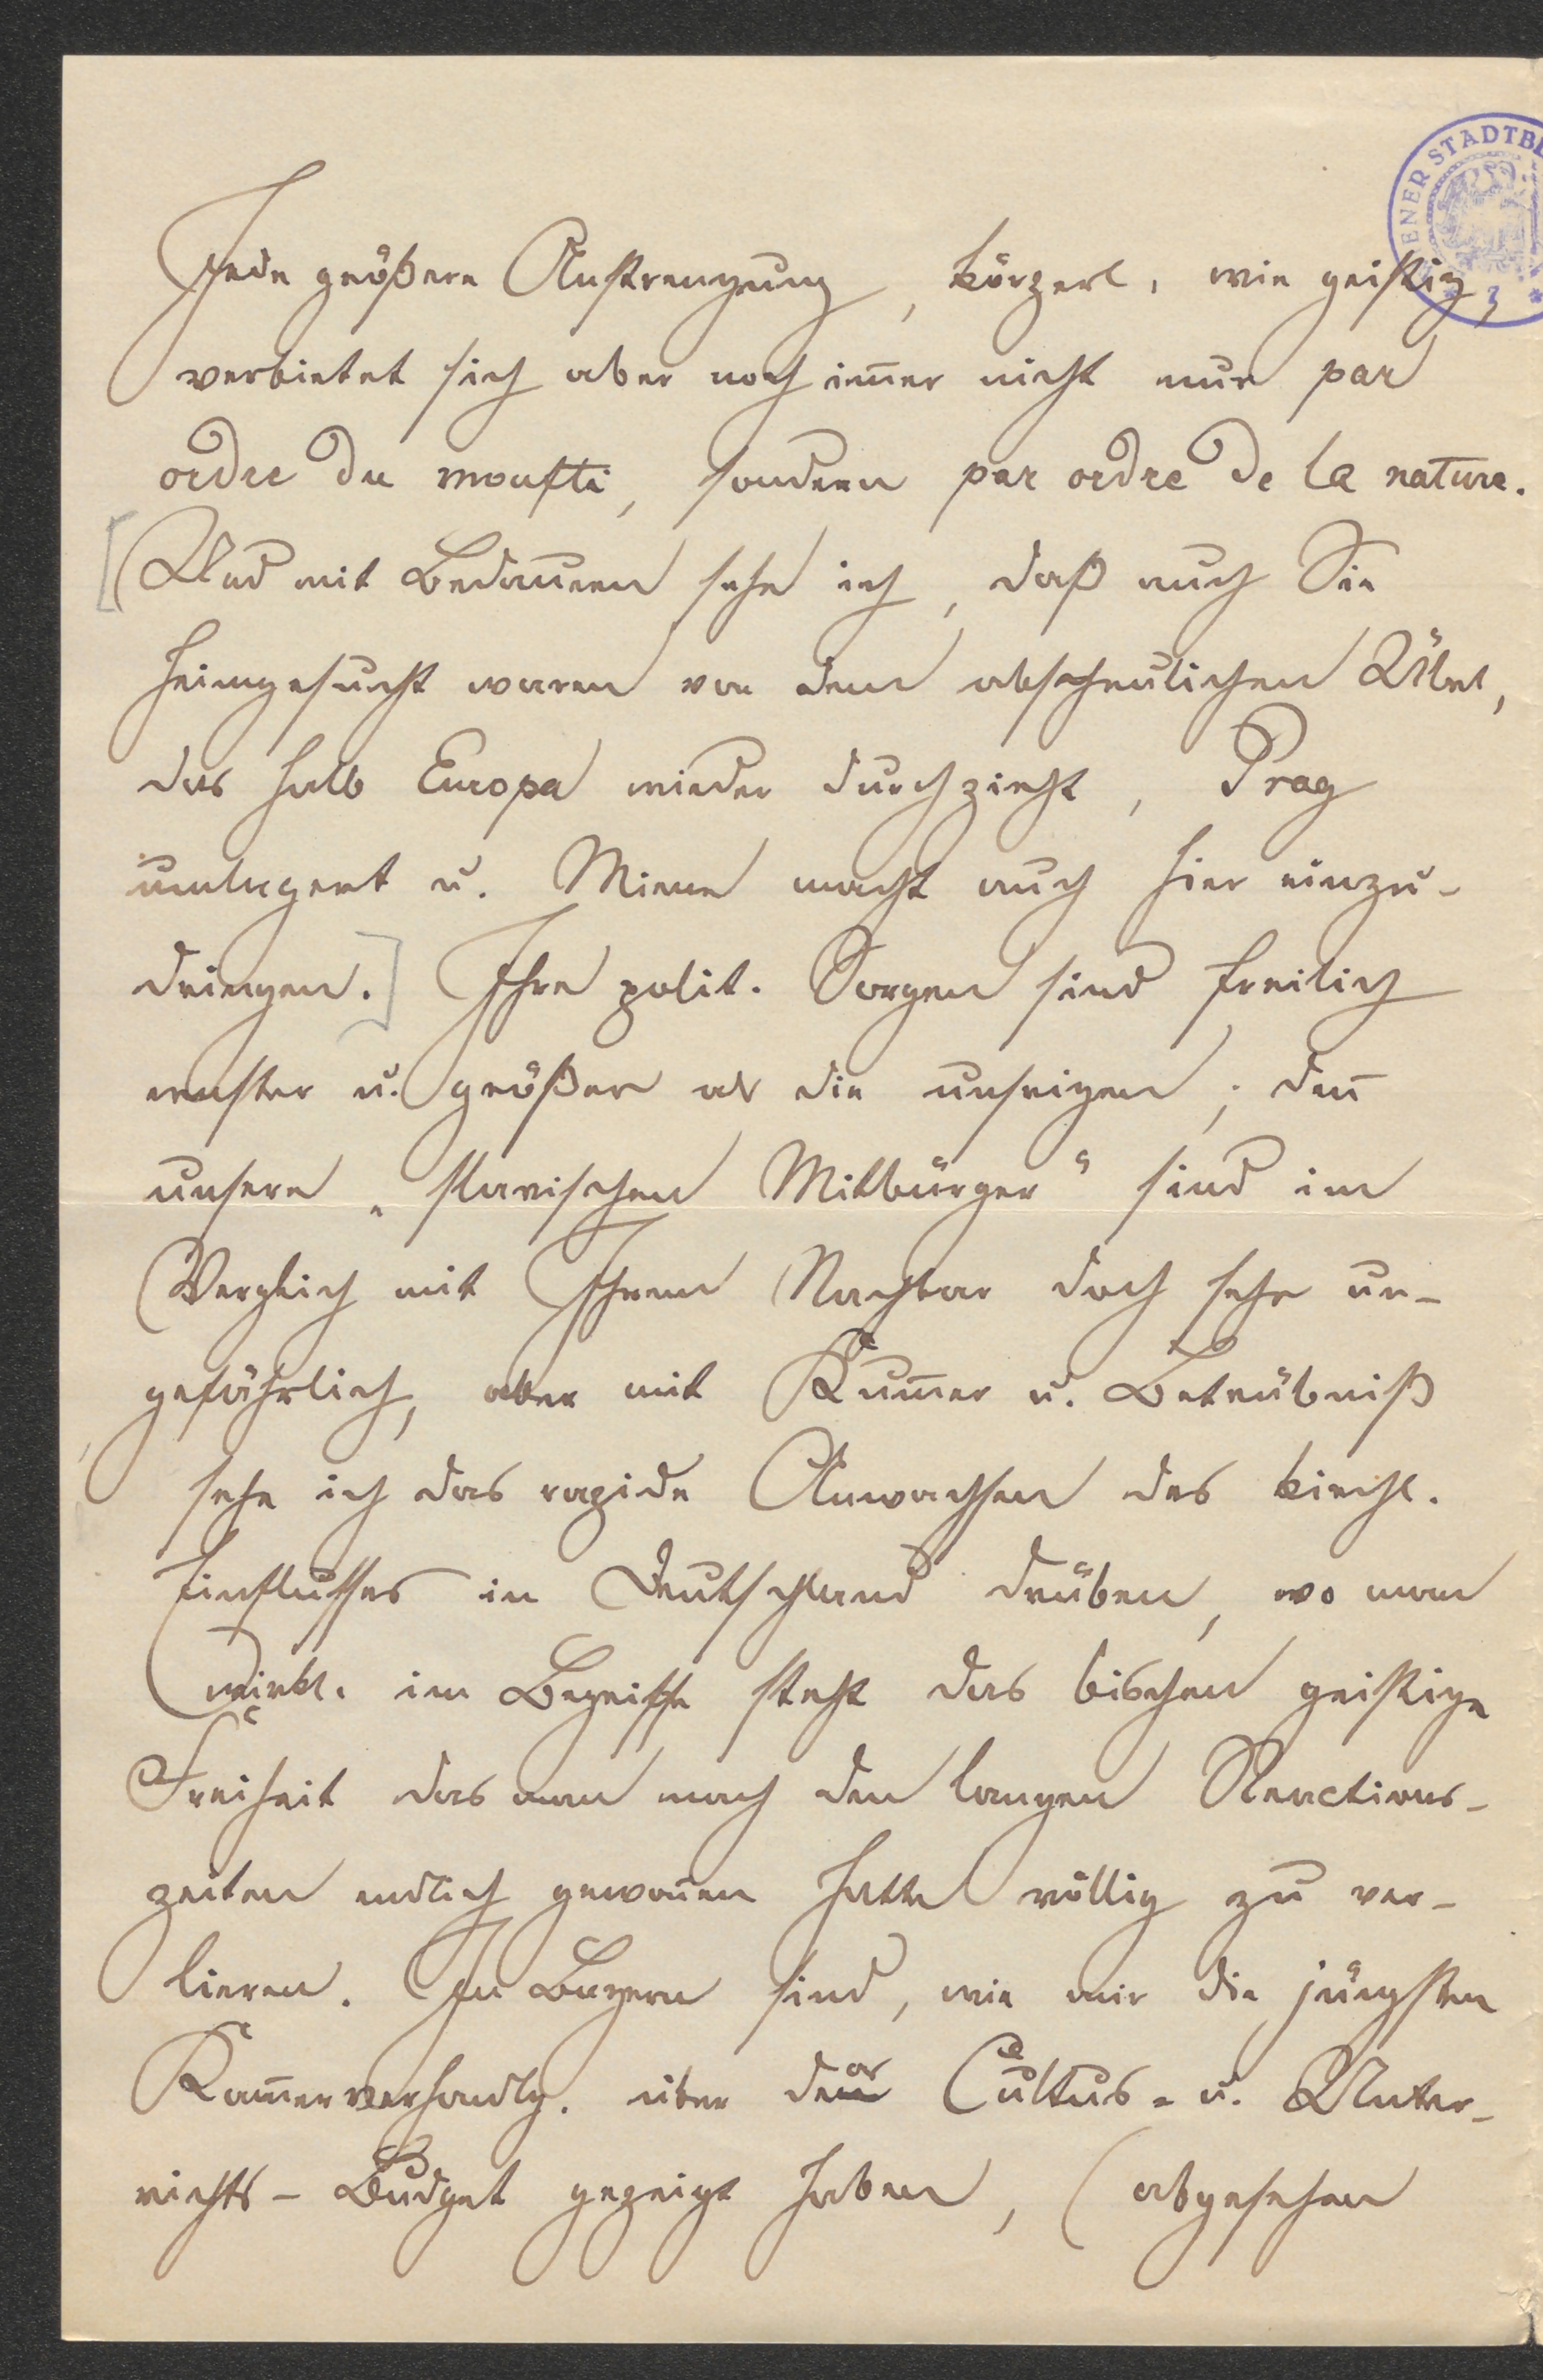 Jede größere Anstrengung, körperl. wie geistig,
verbietet sich aber noch im̅er nicht nur par
ordre du moufti, sondern par ordre de la nature.
[Und mit Bedauern sehe ich, daß auch Sie
heimgesucht waren von dem abscheulichen Übel,
das halb Europa wieder durchzieht, Prag
umlagert u. Miene macht auch hier einzu-
dringen.] Ihre polit. Sorgen sind freilich
ernster u. größer als die unsrigen; den̅
unsere „slavischen Mitbürger“ sind im
Vergleich mit Ihrem Nachbar doch sehr un-
gefährlich, aber mit Kum̅er u. Betrübniß
sehe ich das rapide Anwachsen des kirchl.
Einflusses in Deutschland drüben, wo man
wirkl. im Begriffe steht das bischen geistige
Freiheit das man nach den langen Reactions-
zeiten endlich gewon̅en hatte völlig zu ver-
lieren. In Bayern sind, wie mir die jüngsten
Kam̅erverhandlg. über das Cultus- u. Unter-
richts-Budget gezeigt haben, (abgesehen
WIENER STADTB